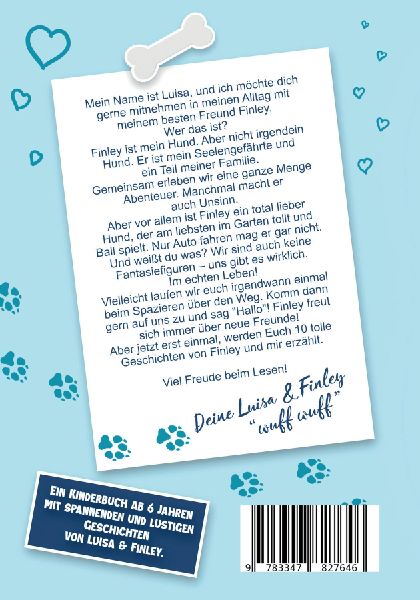 Mein Name ist Luisa, und ich möchte dich
gerne mitnehmen in meinen Alltag mit
meinem besten Freund Finley.
Wer das ist?
Finley ist mein Hund. Aber nicht irgendein
Hund. Er ist mein Seelengefährte und
ein Teil meiner Familie.
Gemeinsam erleben wir eine ganze Menge
Abenteuer. Manchmal macht er
auch Unsinn.
Aber vor allem ist Finley ein total lieber
Hund, der am liebsten im Garten tollt und
Ball spielt. Nur Auto fahren mag er gar nicht.
Und weißt du was? Wir sind auch keine
Fantasiefiguren – uns gibt es wirklich.
Im echten Leben!
Vielleicht laufen wir euch irgendwann einmal
beim Spazieren über den Weg. Komm dann
gern auf uns zu und sag "Hallo"! Finley freut
sich immer über neue Freunde!
Aber jetzt erst einmal, werden Euch 10 tolle
Geschichten von Finley und mir erzählt.
Viel Freude beim Lesen!
Deine Luisa & Finley
"wuff wuff"
EIN KINDERBUCH AB 6 JAHREN
MIT SPANNENDEN UND LUSTIGEN
GESCHICHTEN
VON LUISA & FINLEY.
9 783347 827646